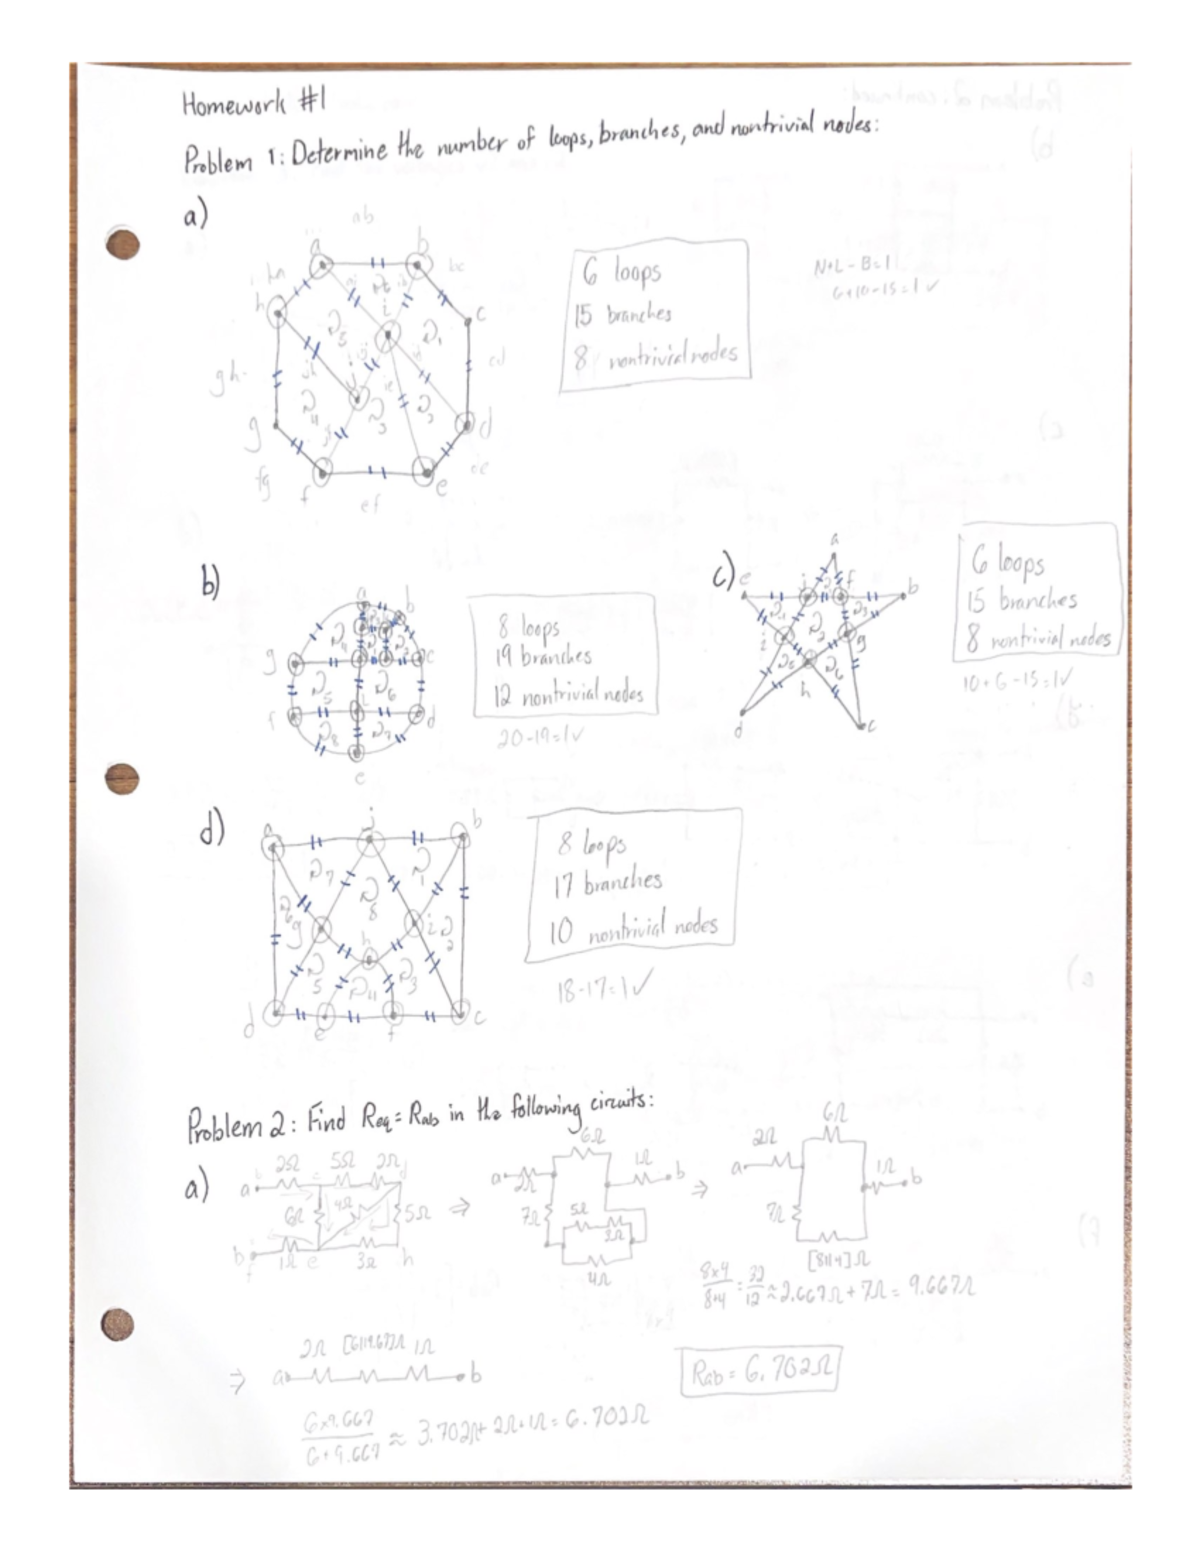 Homework #1
Problem 1: Determine the number of loops, branches, and nontrivial nodes:
a)
ab
a
b
bc
h
i
c
cd
gh
j
g
d
fg
f
e
ef
6 loops
15 branches
8 nontrivial nodes
N+L-B=1
6+10-15=1 ✓
b)
a
b
g
c
f
d
e
8 loops
19 branches
12 nontrivial nodes
20-19=1 ✓
c)
a
e
j
f
b
i
g
h
d
c
6 loops
15 branches
8 nontrivial nodes
10+6-15=1 ✓
d)
a
j
b
g
h
i
d
e
f
c
8 loops
17 branches
10 nontrivial nodes
18-17=1 ✓
Problem 2: Find Req = Rab in the following circuits:
a)
a
2Ω
c
5Ω
2Ω
d
6Ω
4Ω
5Ω
b
f
1Ω
e
3Ω
h
⇒
a
2Ω
6Ω
1Ω
b
7Ω
5Ω
4Ω
⇒
a
2Ω
6Ω
1Ω
b
7Ω
[8||4]Ω
8×4/8+4 = 32/12 ≈ 2.667Ω + 7Ω = 9.667Ω
⇒
2Ω [6||9.67]Ω 1Ω
a
b
6×9.667/6+9.667 ≈ 3.702Ω + 2Ω + 1Ω = 6.702Ω
Rab = 6.702Ω